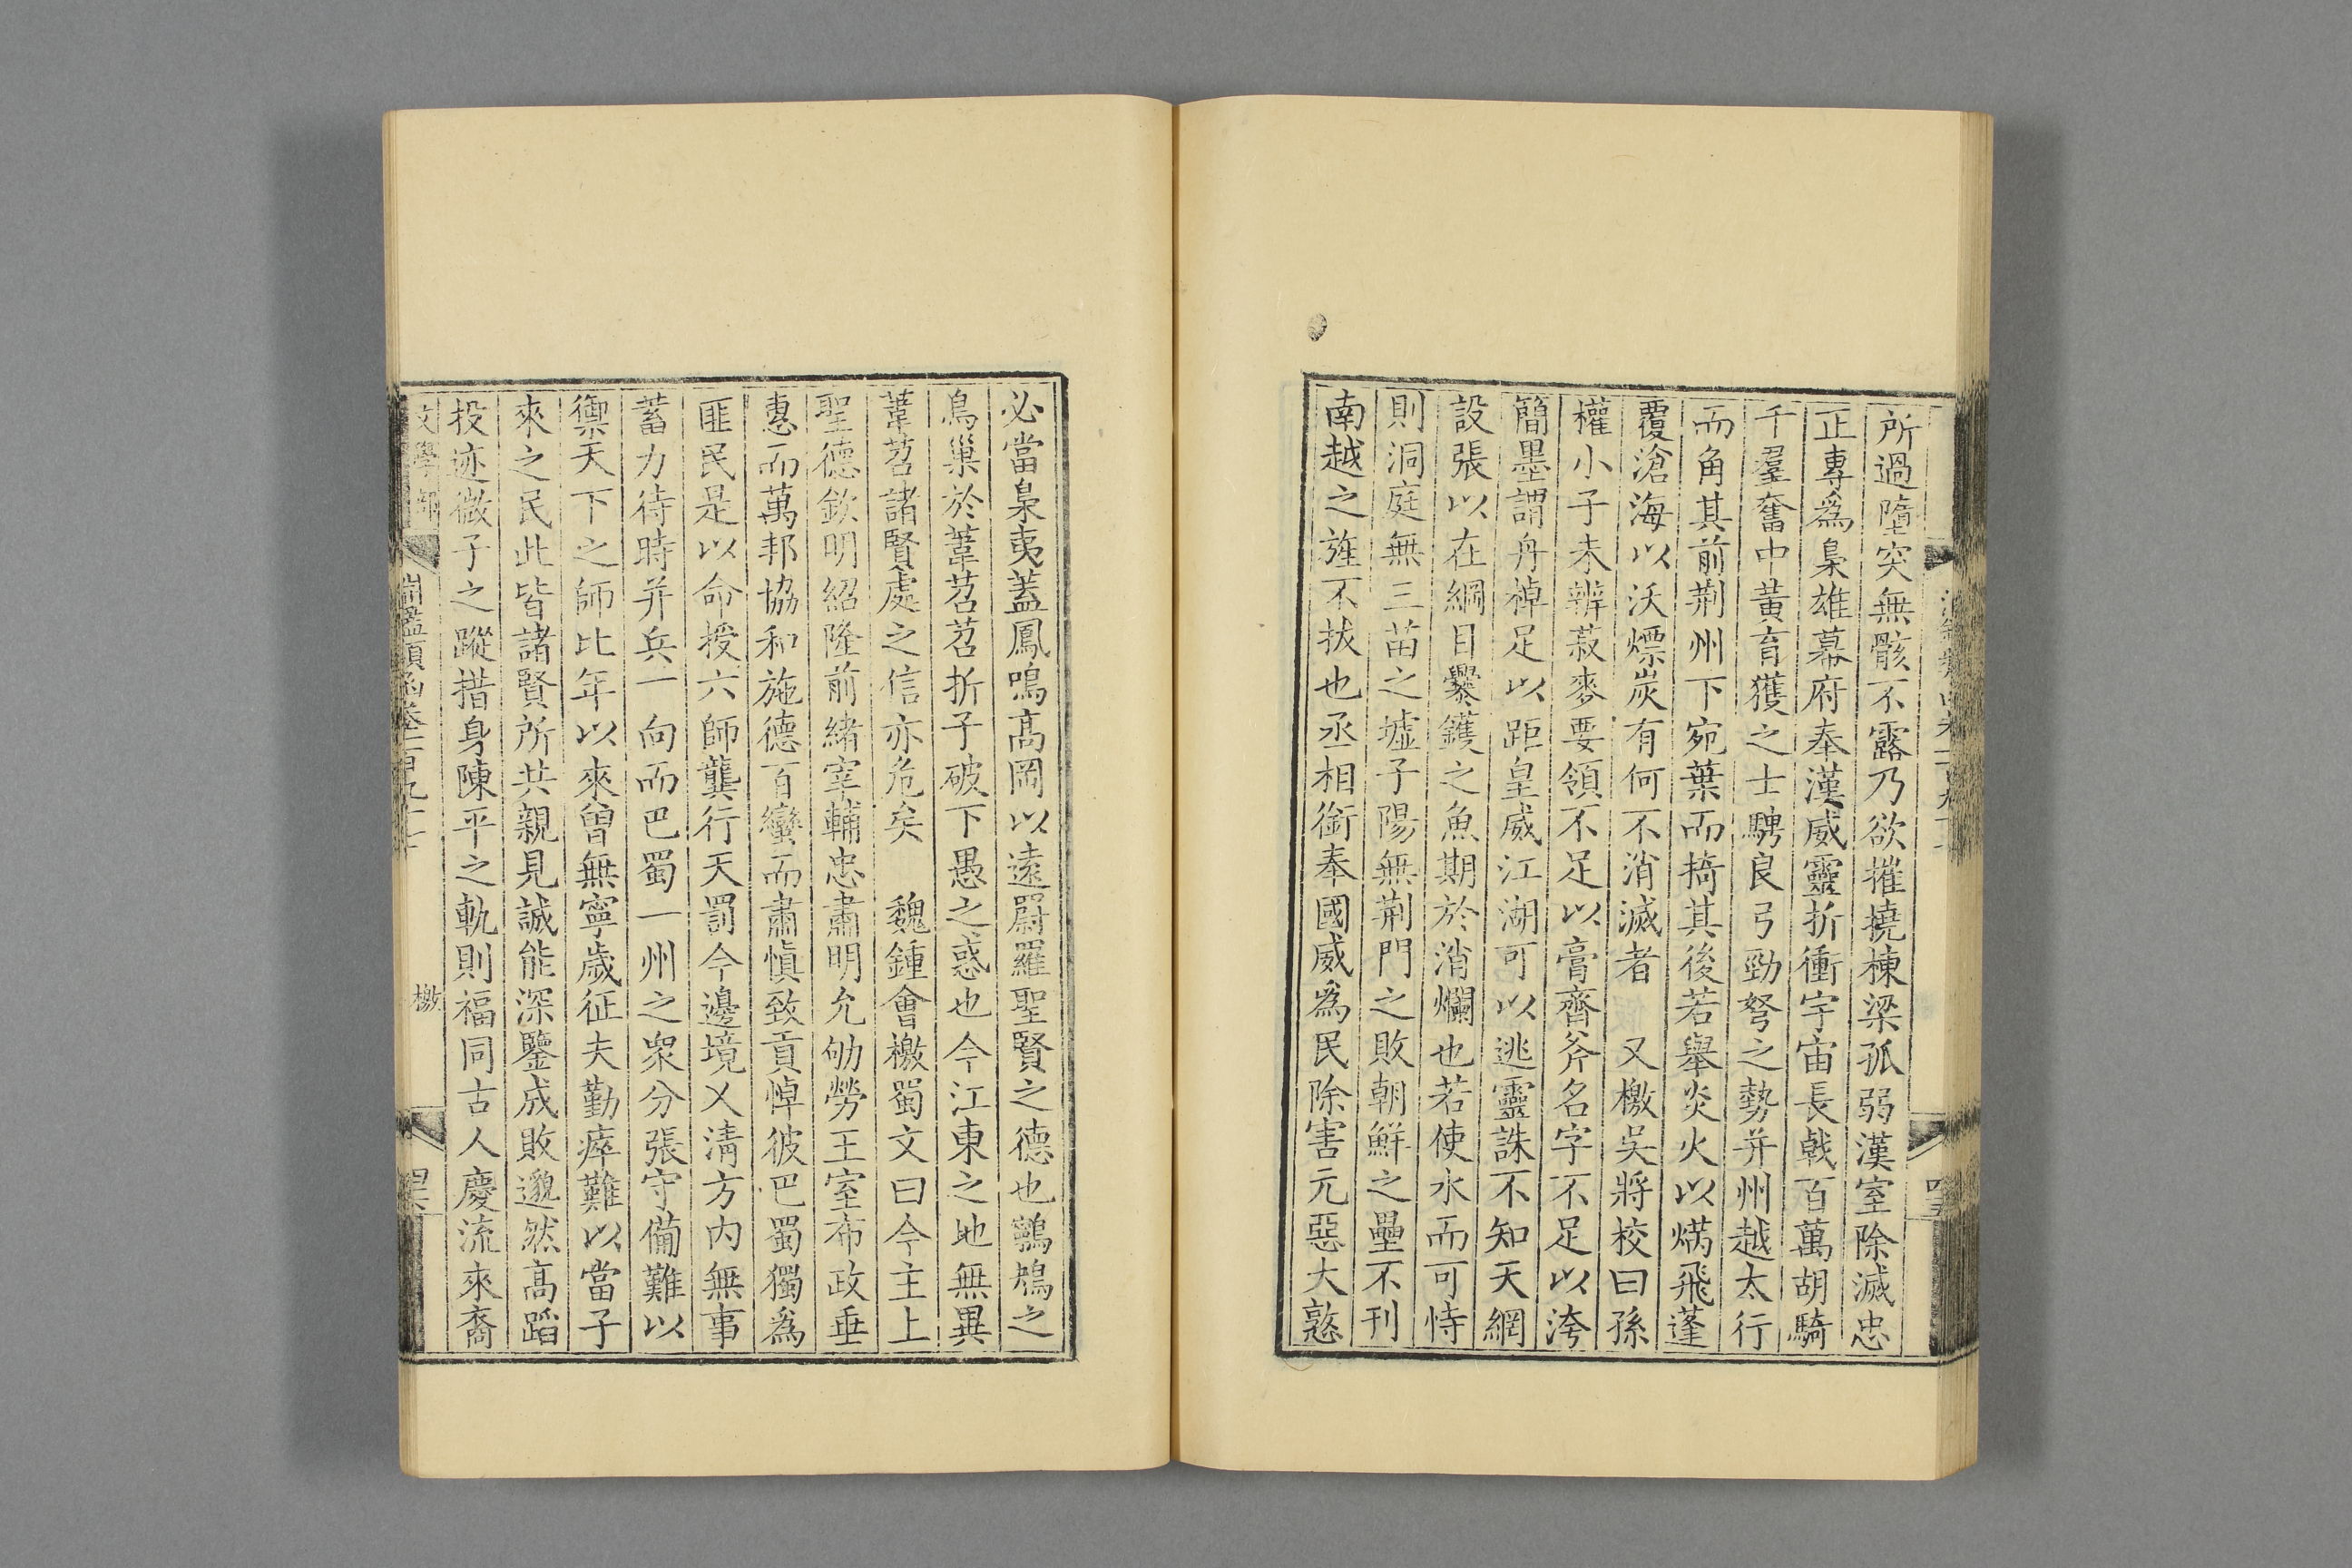 所過墮突無骸不露乃欲摧撓棟梁孤弱漢室除滅忠
正專爲梟雄幕府奉漢威靈折衝宇宙長戟百萬胡騎
千羣奮中黃育獲之士騁良弓勁弩之勢并州越太行
而角其前荆州下宛葉而掎其後若舉炎火以焫飛蓬
覆滄海以沃熛炭有何不消滅者　又檄吳將校曰孫
權小子未辨菽麥要領不足以膏齊斧名字不足以洿
簡墨謂舟棹足以距皇威江湖可以逃靈誅不知天網
設張以在綱目爨鑊之魚期於消爛也若使水而可恃
則洞庭無三苗之墟子陽無荆門之敗朝鮮之壘不刊
南越之旌不拔也丞相銜奉國威爲民除害元惡大憝
必當梟夷蓋鳳鳴高岡以遠罻羅聖賢之德也鸋鴂之
鳥巢於葦苕苕折子破下愚之惑也今江東之地無異
葦苕諸賢處之信亦危矣　魏鍾會檄蜀文曰今主上
聖德欽明紹隆前緒宰輔忠肅明允劬勞王室布政垂
惠而萬邦協和施德百蠻而肅愼致貢悼彼巴蜀獨爲
匪民是以命授六師龔行天罰今邊境乂淸方内無事
蓄力待時并兵一向而巴蜀一州之衆分張守備難以
禦天下之師比年以來曾無寧歲征夫勤瘁難以當子
來之民此皆諸賢所共親見誠能深鑒成敗邈然高蹈
投迹微子之蹤措身陳平之軌則福同古人慶流來裔
文學部　淵鑑類函卷一百九十七　檄